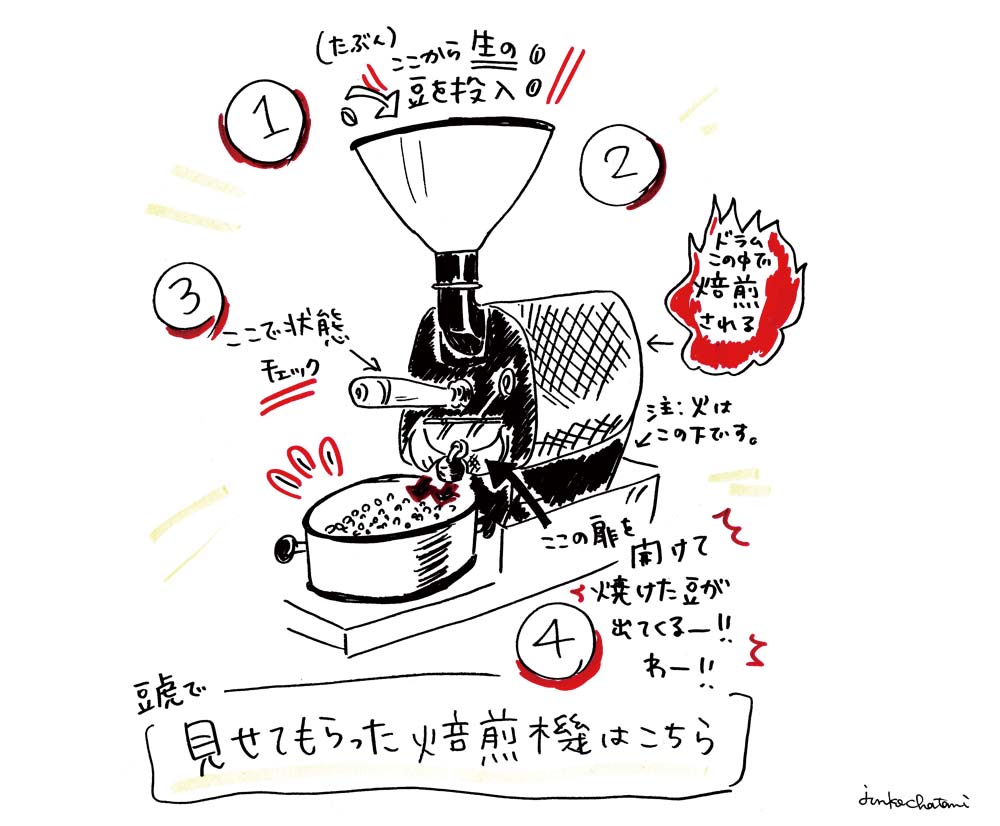 (たぶん)
ここから生の
豆を投入
1
2
ドラム
この中で
焙煎
される
3
ここで状態
チェック
注:火は
この下です。
ここの扉を
開けて
焼けた豆が
出てくるー!!
わー!!
4
豆虎で
見せてもらった焙煎機はこちら